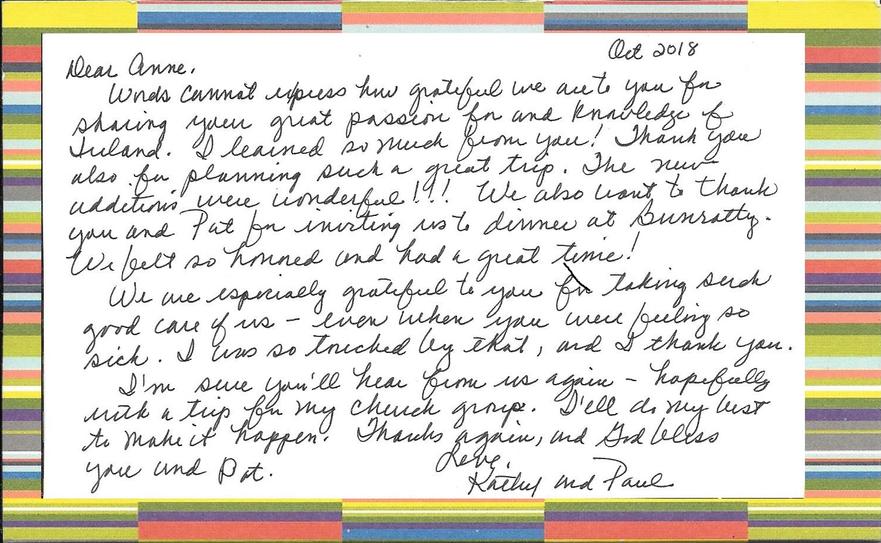 Oct 2018
Dear Anne,
Words cannot express how grateful we are to you for
sharing your great passion for and knowledge of
Ireland. I learned so much from you! Thank you
also for planning such a great trip. The new
additions were wonderful!!! We also want to thank
you and Pat for inviting us to dinner at Bunratty.
We felt so honored and had a great time!
We are especially grateful to you for taking such
good care of us – even when you were feeling so
sick. I was so touched by that, and I thank you.
I'm sure you'll hear from us again – hopefully
with a trip for my church group. I'll do my best
to make it happen. Thanks again, and God bless
you and Pat.
Love,
Kathy and Paul